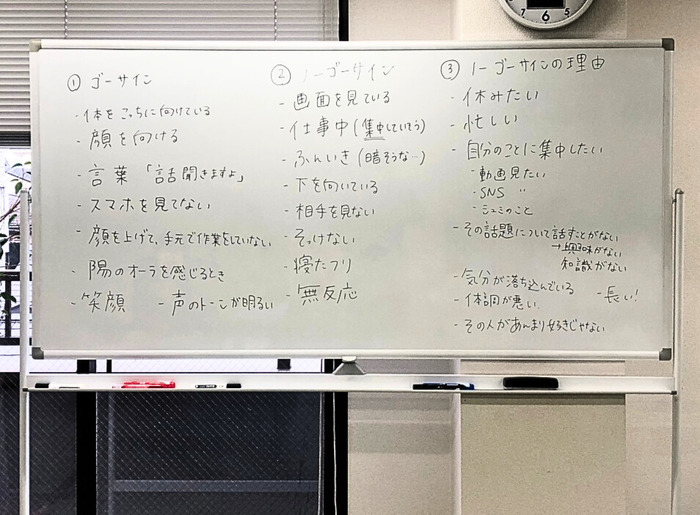 ① ゴーサイン
- 体をこっちに向けている
- 顔を向ける
- 言葉「話聞きますよ」
- スマホを見てない
- 顔を上げて、手元で作業をしていない
- 陽のオーラを感じるとき
- 笑顔 - 声のトーンが明るい
② ノーゴーサイン
- 画面を見ている
- 仕事中(集中していそう)
- ふんいき(暗そうな…)
- 下を向いている
- 相手を見ない
- そっけない
- 寝たフリ
- 無反応
③ ノーゴーサインの理由
- 休みたい
- 忙しい
- 自分のことに集中したい
- 動画見たい
- SNS 〃
- シュミのこと
- その話題について話すことがない
→興味がない
知識がない
- 気分が落ち込んでいる
- 体調が悪い
- 長い!
- その人があんまり好きじゃない
6 5 7